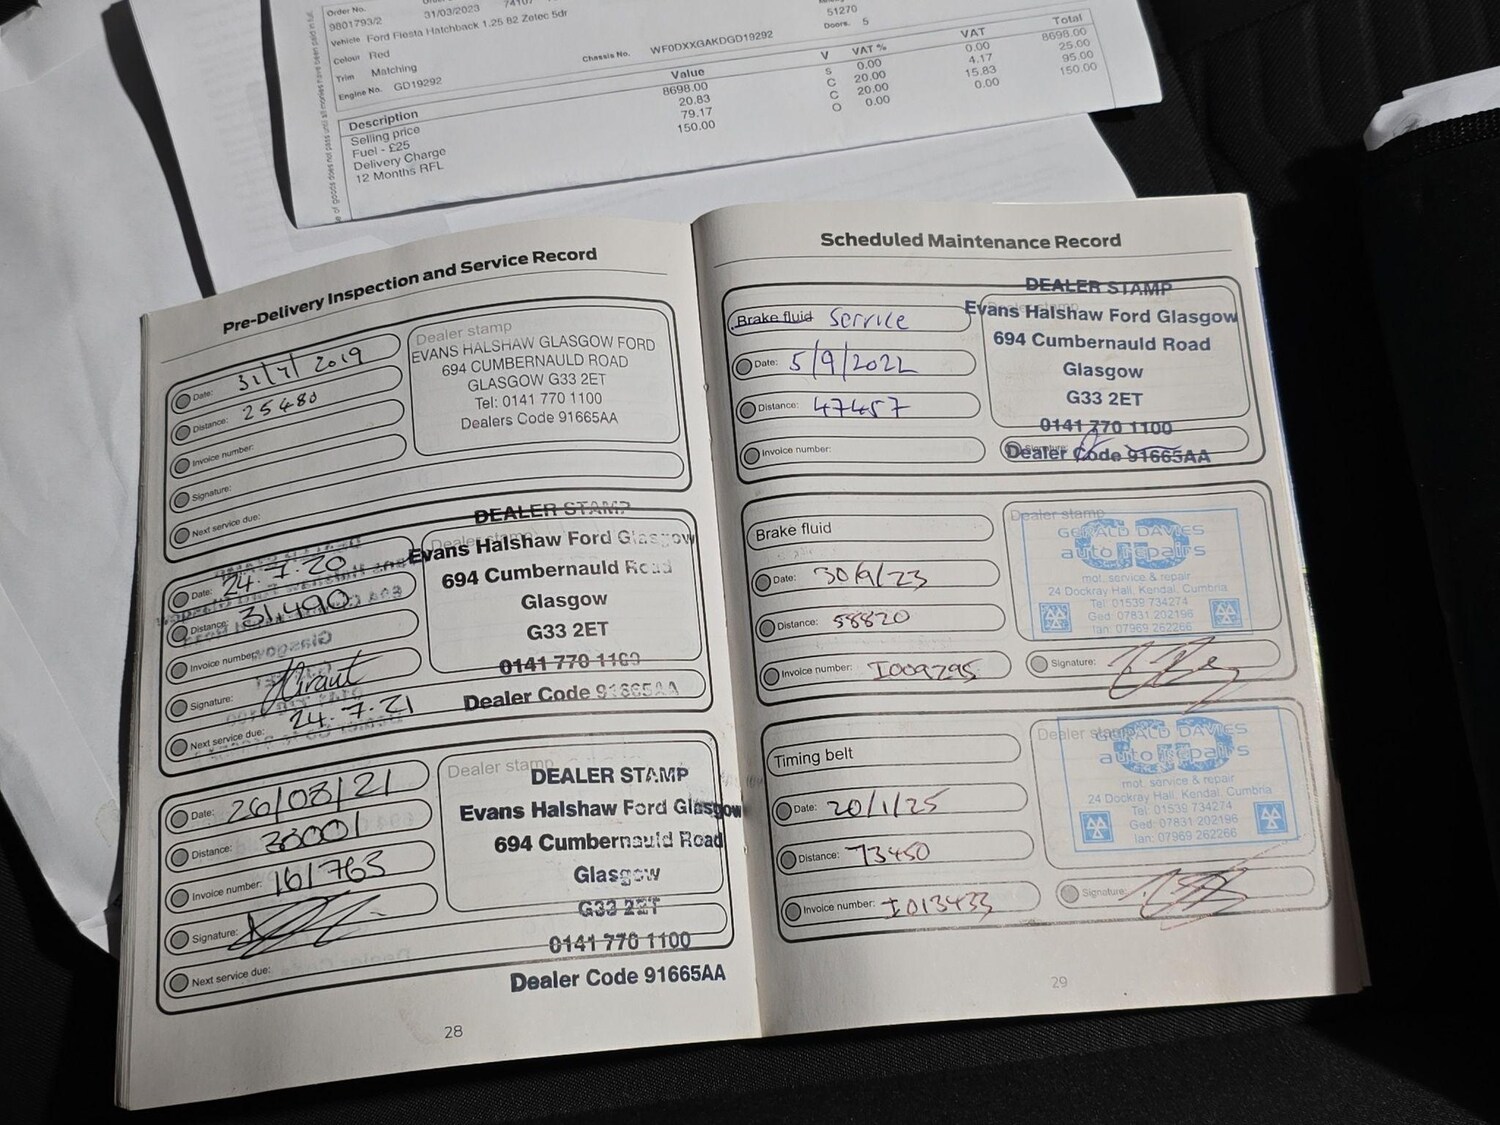 Order No.
9801793/2
31/03/2023
Vehicle Ford Fiesta Hatchback 1.25 82 Zetec 5dr
51270
Doors. 5
Colour Red
Chassis No. WF0DXXGAKDGD19292
Trim Matching
Engine No. GD19292
Description Value V VAT % VAT Total
Selling price 8698.00 S 0.00 0.00 8698.00
Fuel - £25 20.83 C 20.00 4.17 25.00
Delivery Charge 79.17 C 20.00 15.83 95.00
12 Months RFL 150.00 O 0.00 0.00 150.00
Pre-Delivery Inspection and Service Record
Date: 31/7/2019
Distance: 25480
Invoice number:
Signature:
Next service due:
Dealer stamp
EVANS HALSHAW GLASGOW FORD
694 CUMBERNAULD ROAD
GLASGOW G33 2ET
Tel: 0141 770 1100
Dealers Code 91665AA
Date: 24.7.20
Distance: 31,490
Invoice number:
Signature:
Next service due: 24.7.21
Dealer stamp
DEALER STAMP
Evans Halshaw Ford Glasgow
694 Cumbernauld Road
Glasgow
G33 2ET
0141 770 1100
Dealer Code 91665AA
Date: 26/08/21
Distance:
Invoice number: 161763
Signature:
Next service due:
Dealer stamp
DEALER STAMP
Evans Halshaw Ford Glasgow
694 Cumbernauld Road
Glasgow
G33 2ET
0141 770 1100
Dealer Code 91665AA
28
Scheduled Maintenance Record
Brake fluid Service
Date: 5/9/2022
Distance: 47457
Invoice number:
DEALER STAMP
Dealer stamp
Evans Halshaw Ford Glasgow
694 Cumbernauld Road
Glasgow
G33 2ET
0141 770 1100
Signature:
Dealer Code 91665AA
Brake fluid
Date: 30/9/23
Distance: 58820
Invoice number: I009295
Dealer stamp
GERALD DAVIES
auto repairs
mot, service & repair
24 Dockray Hall, Kendal, Cumbria
Tel: 01539 734274
Ged: 07831 202196
Ian: 07969 262266
Signature:
Timing belt
Date: 20/1/25
Distance: 73450
Invoice number: I013433
Dealer stamp
GERALD DAVIES
auto repairs
mot, service & repair
24 Dockray Hall, Kendal, Cumbria
Tel: 01539 734274
Ged: 07831 202196
Ian: 07969 262266
Signature:
29